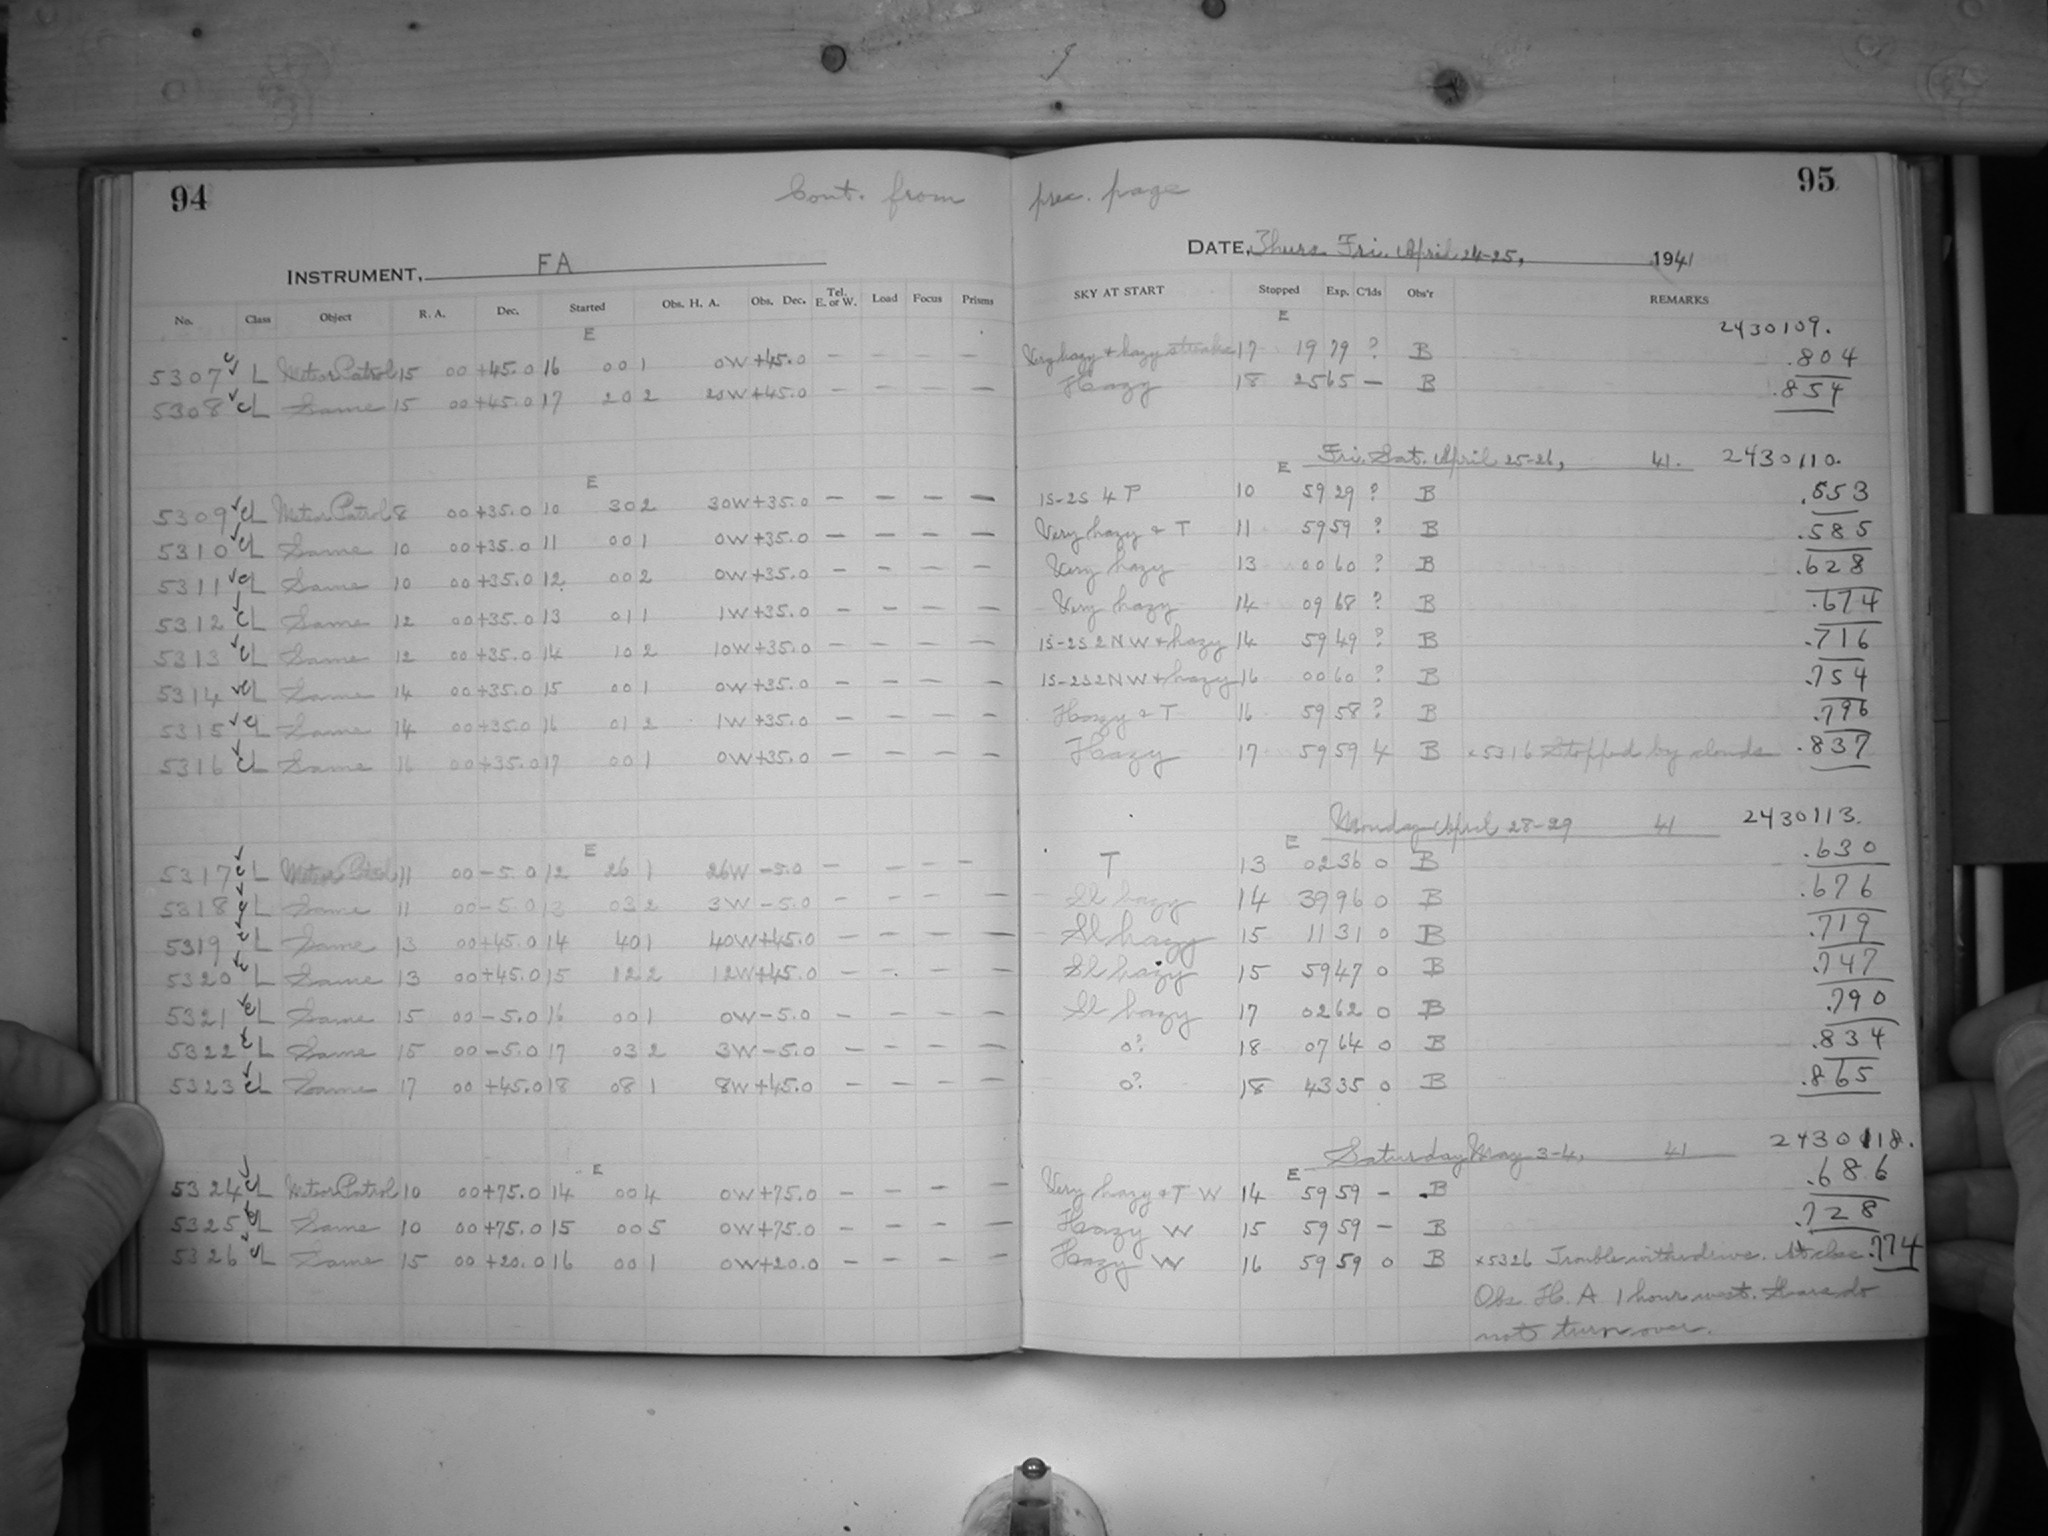 94
Cont. from prec. page
95
INSTRUMENT, FA
DATE, Thurs. Fri. April 24-25, 1941
No. Class Object R. A. Dec. Started Obs. H. A. Obs. Dec. Tel. E. or W. Load Focus Prisms SKY AT START Stopped Exp. C'lds Obs'r REMARKS
E E 2430109.
5307 L Meteor Patrol 15 00 +45.0 16 00 1 0W +45.0 — — — — Very hazy + hazy streaks 17 19 79 ? B .804
5308 L Same 15 00 +45.0 17 20 2 20W +45.0 — — — — Hazy 18 25 65 — B .854
Fri. Sat. April 25-26, 41. 2430110.
E E
5309 L Meteor Patrol 8 00 +35.0 10 30 2 30W +35.0 — — — — 1S-2S 4 T 10 59 29 ? B .553
5310 L Same 10 00 +35.0 11 00 1 0W +35.0 — — — — Very hazy + T 11 59 59 ? B .585
5311 L Same 10 00 +35.0 12 00 2 0W +35.0 — — — — Very hazy 13 00 60 ? B .628
5312 L Same 12 00 +35.0 13 01 1 1W +35.0 — — — — Very hazy 14 09 68 ? B .674
5313 L Same 12 00 +35.0 14 10 2 10W +35.0 — — — — 1S-2S 2 N W + hazy 14 59 49 ? B .716
5314 L Same 14 00 +35.0 15 00 1 0W +35.0 — — — — 1S-2S 2 N W + hazy 16 00 60 ? B .754
5315 L Same 14 00 +35.0 16 01 2 1W +35.0 — — — — Hazy + T 16 59 58 ? B .796
5316 L Same 16 00 +35.0 17 00 1 0W +35.0 — — — — Hazy 17 59 59 4 B x5316 Stopped by clouds .837
Monday April 28-29 41 2430113.
E E
5317 L Meteor Patrol 11 00 -5.0 12 26 1 26W -5.0 — — — — T 13 02 36 0 B .630
5318 L Same 11 00 -5.0 13 03 2 3W -5.0 — — — — Sl hazy 14 39 96 0 B .676
5319 L Same 13 00 +45.0 14 40 1 40W +45.0 — — — — Sl hazy 15 11 31 0 B .719
5320 L Same 13 00 +45.0 15 12 2 12W +45.0 — — — — Sl hazy 15 59 47 0 B .747
5321 L Same 15 00 -5.0 16 00 1 0W -5.0 — — — — Sl hazy 17 02 62 0 B .790
5322 L Same 15 00 -5.0 17 03 2 3W -5.0 — — — — 0? 18 07 64 0 B .834
5323 L Same 17 00 +45.0 18 08 1 8W +45.0 — — — — 0? 18 43 35 0 B .865
Saturday May 3-4, 41 2430118.
E E
5324 L Meteor Patrol 10 00 +75.0 14 00 4 0W +75.0 — — — — Very hazy + T W 14 59 59 — B .686
5325 L Same 10 00 +75.0 15 00 5 0W +75.0 — — — — Hazy W 15 59 59 — B .728
5326 L Same 15 00 +20.0 16 00 1 0W +20.0 — — — — Hazy W 16 59 59 0 B x5326 Trouble with drive. At close .774
Obs. H. A 1 hour west. Gears do
not turn over.